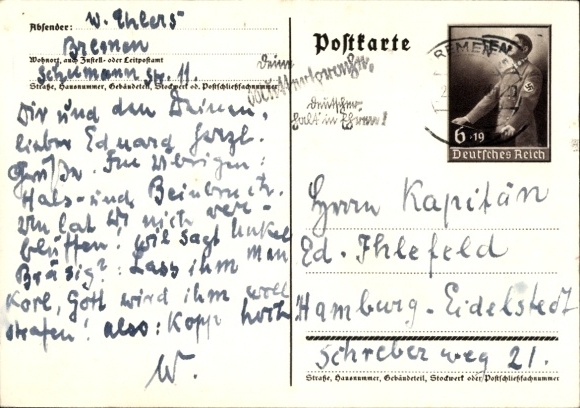 Absender: W. Ehlers
Bremen
Wohnort, auch Zustell- oder Leitpostamt
Schumann str. 11.
Straße, Hausnummer, Gebäudeteil, Stockwerk od. Postschließfachnummer
Dir und den Deinen,
lieber Eduard herzl.
Grüße. Im Übrigen:
Hals- und Beinbruch.
Un lat Di nich ver-
blüffen! Wie sagt Unkel
Bräsig?: Lass ihm man
Korl, Gott wird ihm woll
strafen! also: Kopp hoch
W.
Postkarte
BREMEN
Deine
Muttersprache,
Deutscher,
halt in Ehren!
6+19
Deutsches Reich
Herrn Kapitän
Ed. Ihlefeld
Hamburg-Eidelstedt
Schreber weg 21.
Straße, Hausnummer, Gebäudeteil, Stockwerk oder Postschließfachnummer